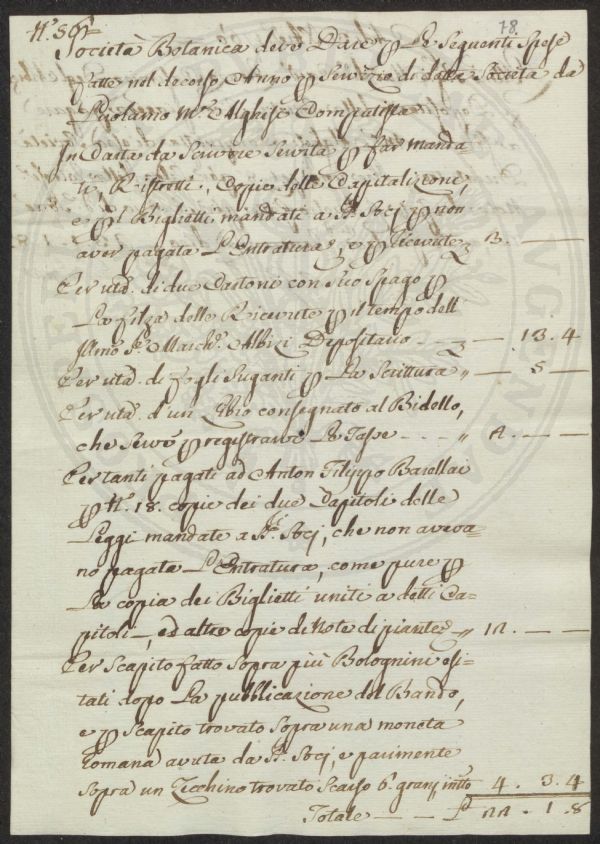 N.° 56.
78.
Società Botanica deve Dare p Le Seguenti Spese
fatte nel decorso Anno p Servizio di detta Società da
Girolamo M.ª Alghisi Computista
In Carta da Scrivere Servita p far Manda
ti, Ristretti, Copie delle Capitolazioni,
e p i Biglietti mandati a SS.ri Socj p non
aver pagata L'Entratura, e p Ricevute 3. — —
Per utd. di due Cartoni con suo Spago p
La filza delle Ricevute p il tempo dell'
Illmo Sr. March. Albizi Depositario — — 13. 4
Per utd. di fogli Suganti p La Scrittura „ — 5 —
Per utd. d'un Libro consegnato al Bidello,
che Serve p registrarvi Le Tasse - - - „ 2. — —
Per tanti pagati ad Anton Filippo Barellai
p N.° 18. copie dei due Capitoli delle
Leggi mandate a SS.ri Socj, che non aveva-
no pagata L'Entratura, come pure p
La copia dei Biglietti uniti a detti Ca-
pitoli, ed altre copie di Note di piante „ 12. — —
Per Scapito fatto Sopra più Bolognini esi-
tati dopo La pubblicazione del Bando,
e p Scapito trovato Sopra una moneta
Romana avuta da SS.ri Socj, e parimente
Sopra un Zecchino trovato Scarso 6. grani in tto 4. 3. 4
Totale — — L 22. 1. 8